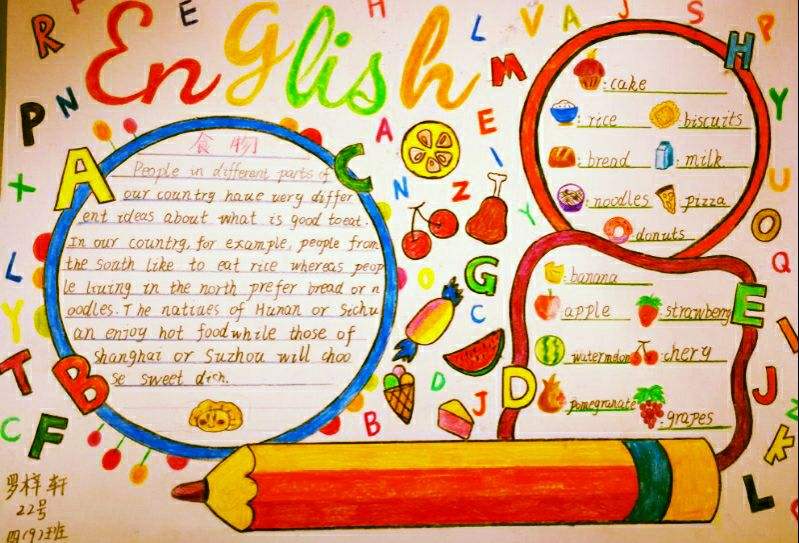 English
食物
People in different parts of
our country have very differ
ent ideas about what is good to eat.
In our country, for example, people from
the south like to eat rice whereas peop
le living in the north prefer bread or n
oodles. The natives of Hunan or Sichu
an enjoy hot food while those of
Shanghai or Suzhou will choo
se sweet dich.
cake
rice
biscuits
bread
milk
noodles
pizza
donuts
banana
apple
strawberry
watermelon
chery
pomegranate
grapes
A
B
C
D
E
F
G
H
I
J
K
L
22号
四(9)班